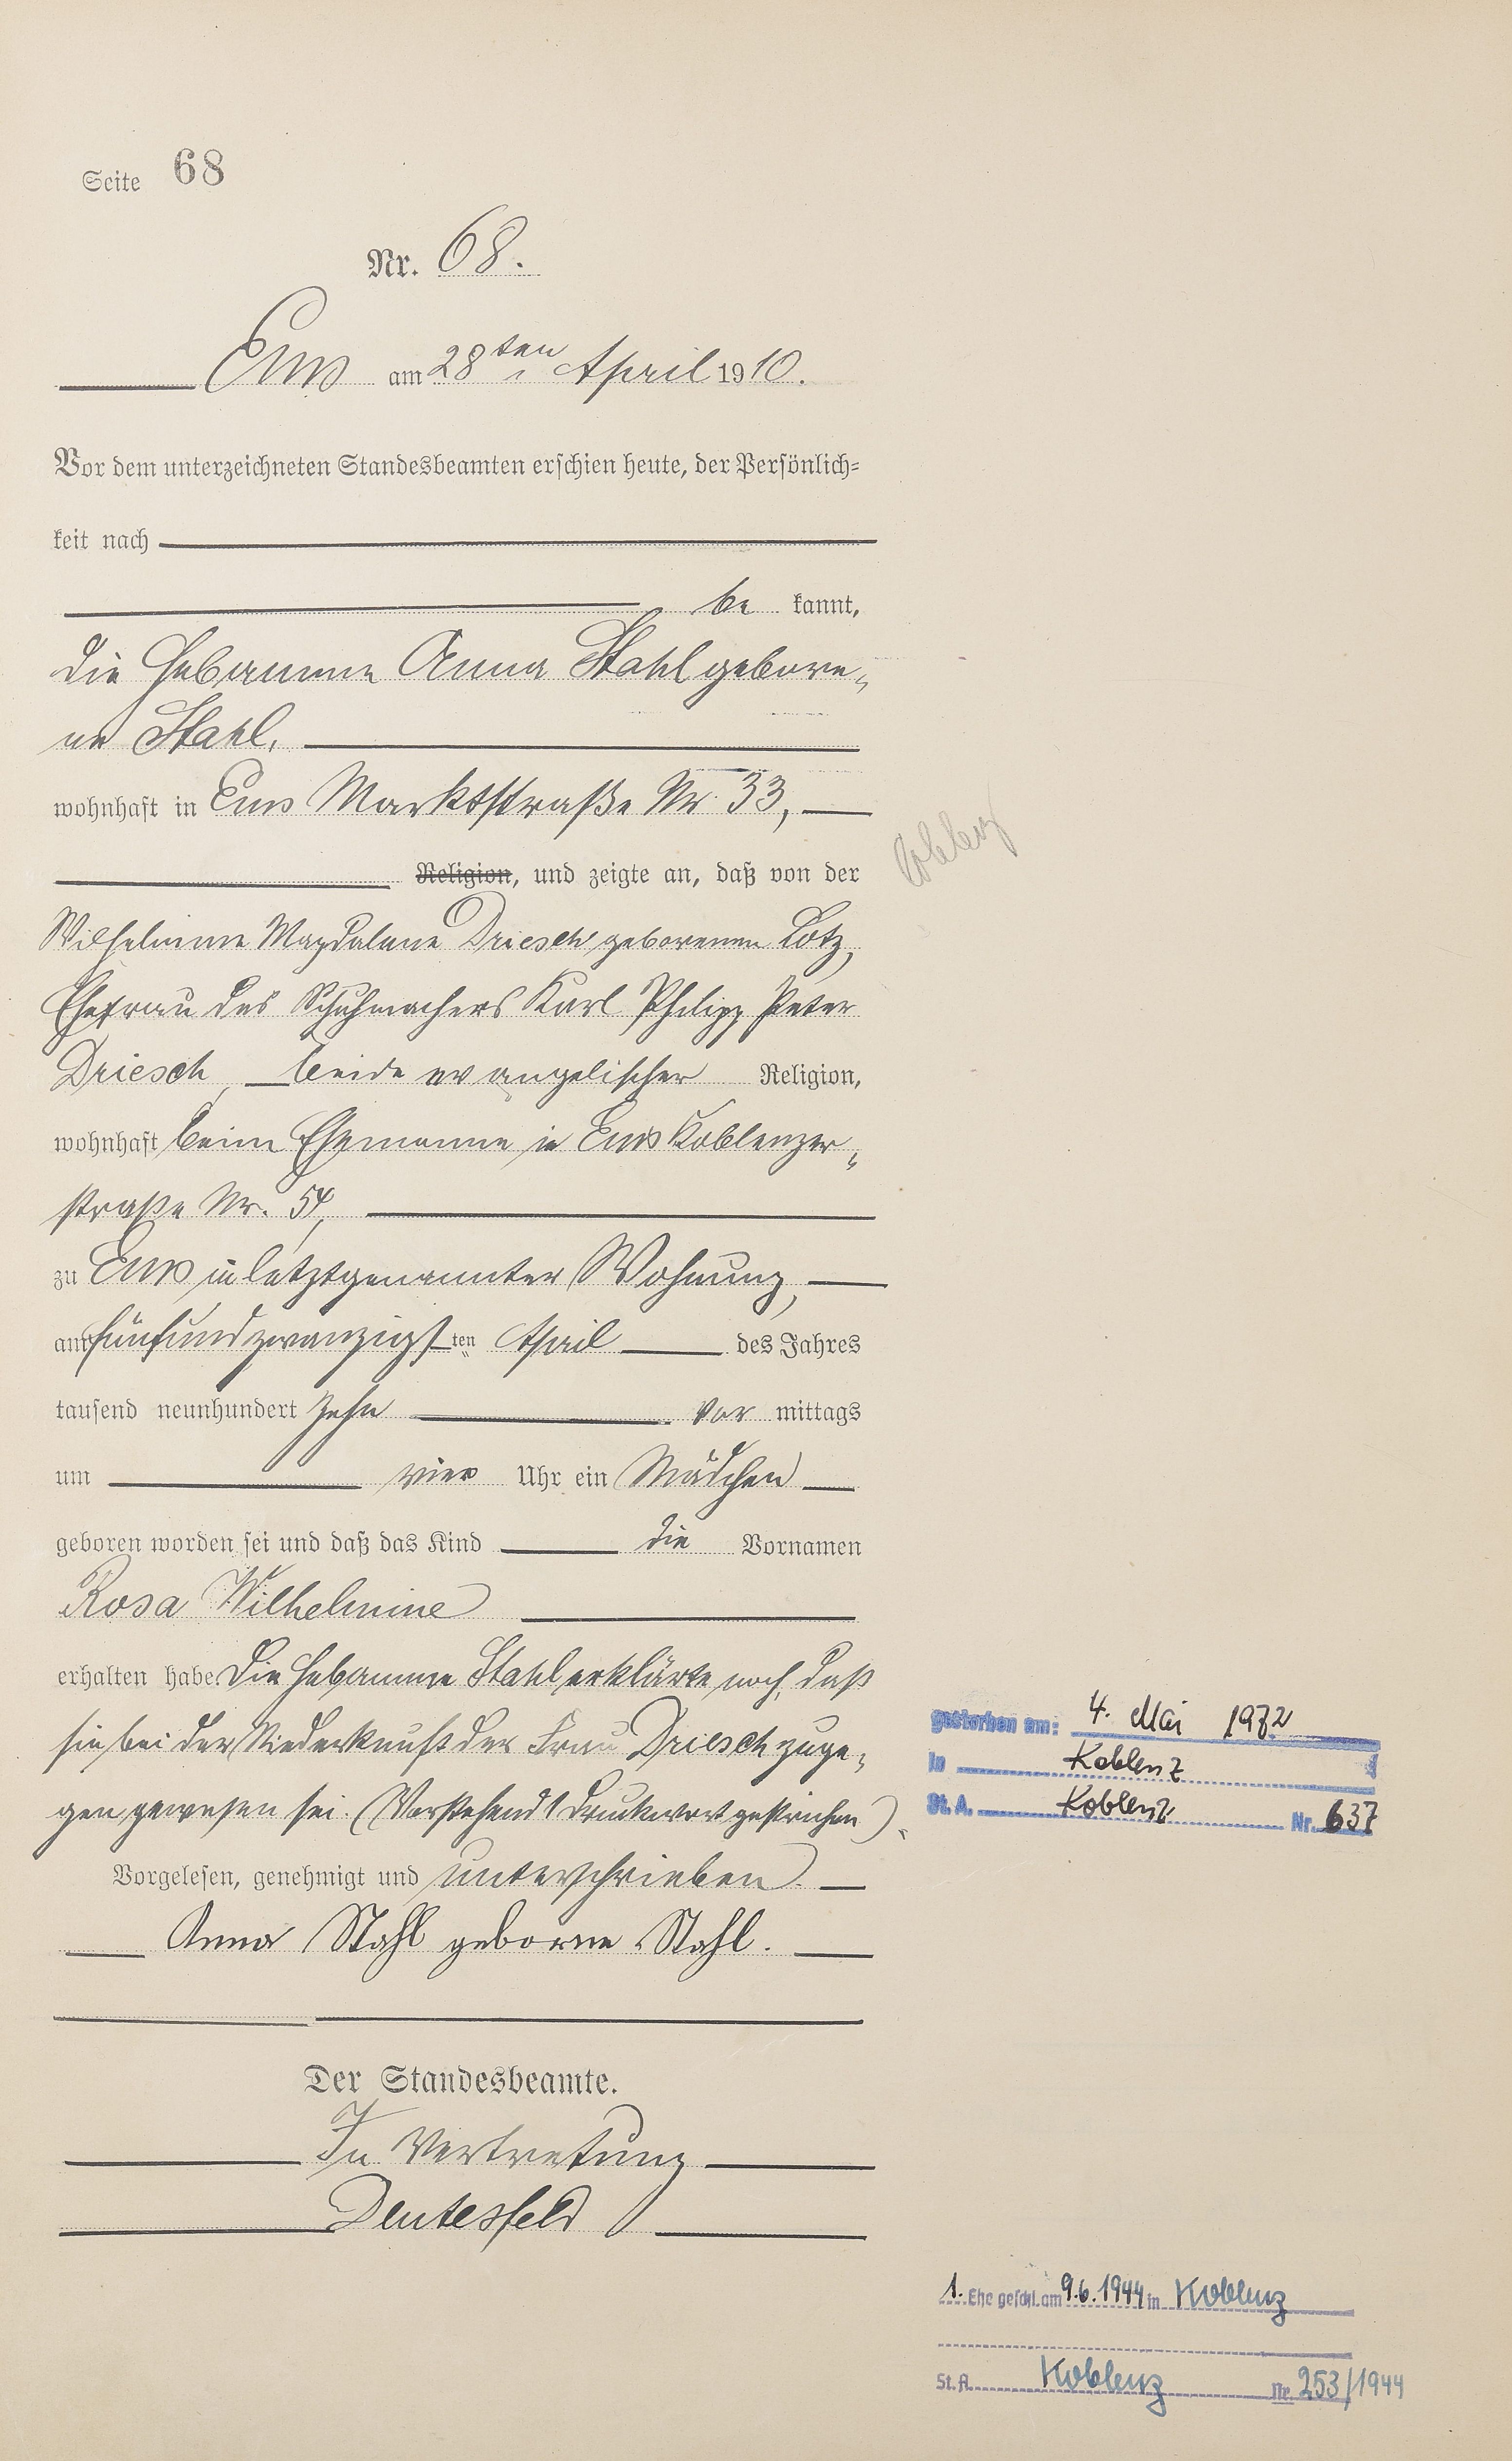 Seite 68
Nr. 68.
Ems am 28ten April 1910.
Vor dem unterzeichneten Standesbeamten erschien heute, der Persönlich-
keit nach
be kannt,
die Hebamme Anna Stahl gebore-
ne Stahl,
wohnhaft in Ems Marktstraße Nr. 33,
Religion, und zeigte an, daß von der
Wilhelmine Magdalene Driesch geborenen Lotz,
Ehefrau des Schuhmachers Karl Philipp Peter
Driesch, beide evangelischer Religion,
wohnhaft beim Ehemanne in Ems Koblenzer-
straße Nr. 54,
zu Ems in letztgenannter Wohnung,
am fünfundzwanzigsten April des Jahres
tausend neunhundert zehn vor mittags
um vier Uhr ein Mädchen
geboren worden sei und daß das Kind die Vornamen
Rosa Wilhelmine
erhalten habe. Die Hebamme Stahl erklärte noch, daß
sie bei der Niederkunft der Frau Driesch zuge-
gen gewesen sei. (Vorstehend 1 Druckwort gestrichen).
Vorgelesen, genehmigt und unterschrieben.
Anna Stahl geborne Stahl.
Der Standesbeamte.
In Vertretung
Deutesfeld
Coblenz
gestorben am: 4. Mai 1972
in Koblenz
St. A. Koblenz Nr. 637
1. Ehe geschl. am 9.6.1944 in Koblenz
St. A. Koblenz Nr. 253/1944